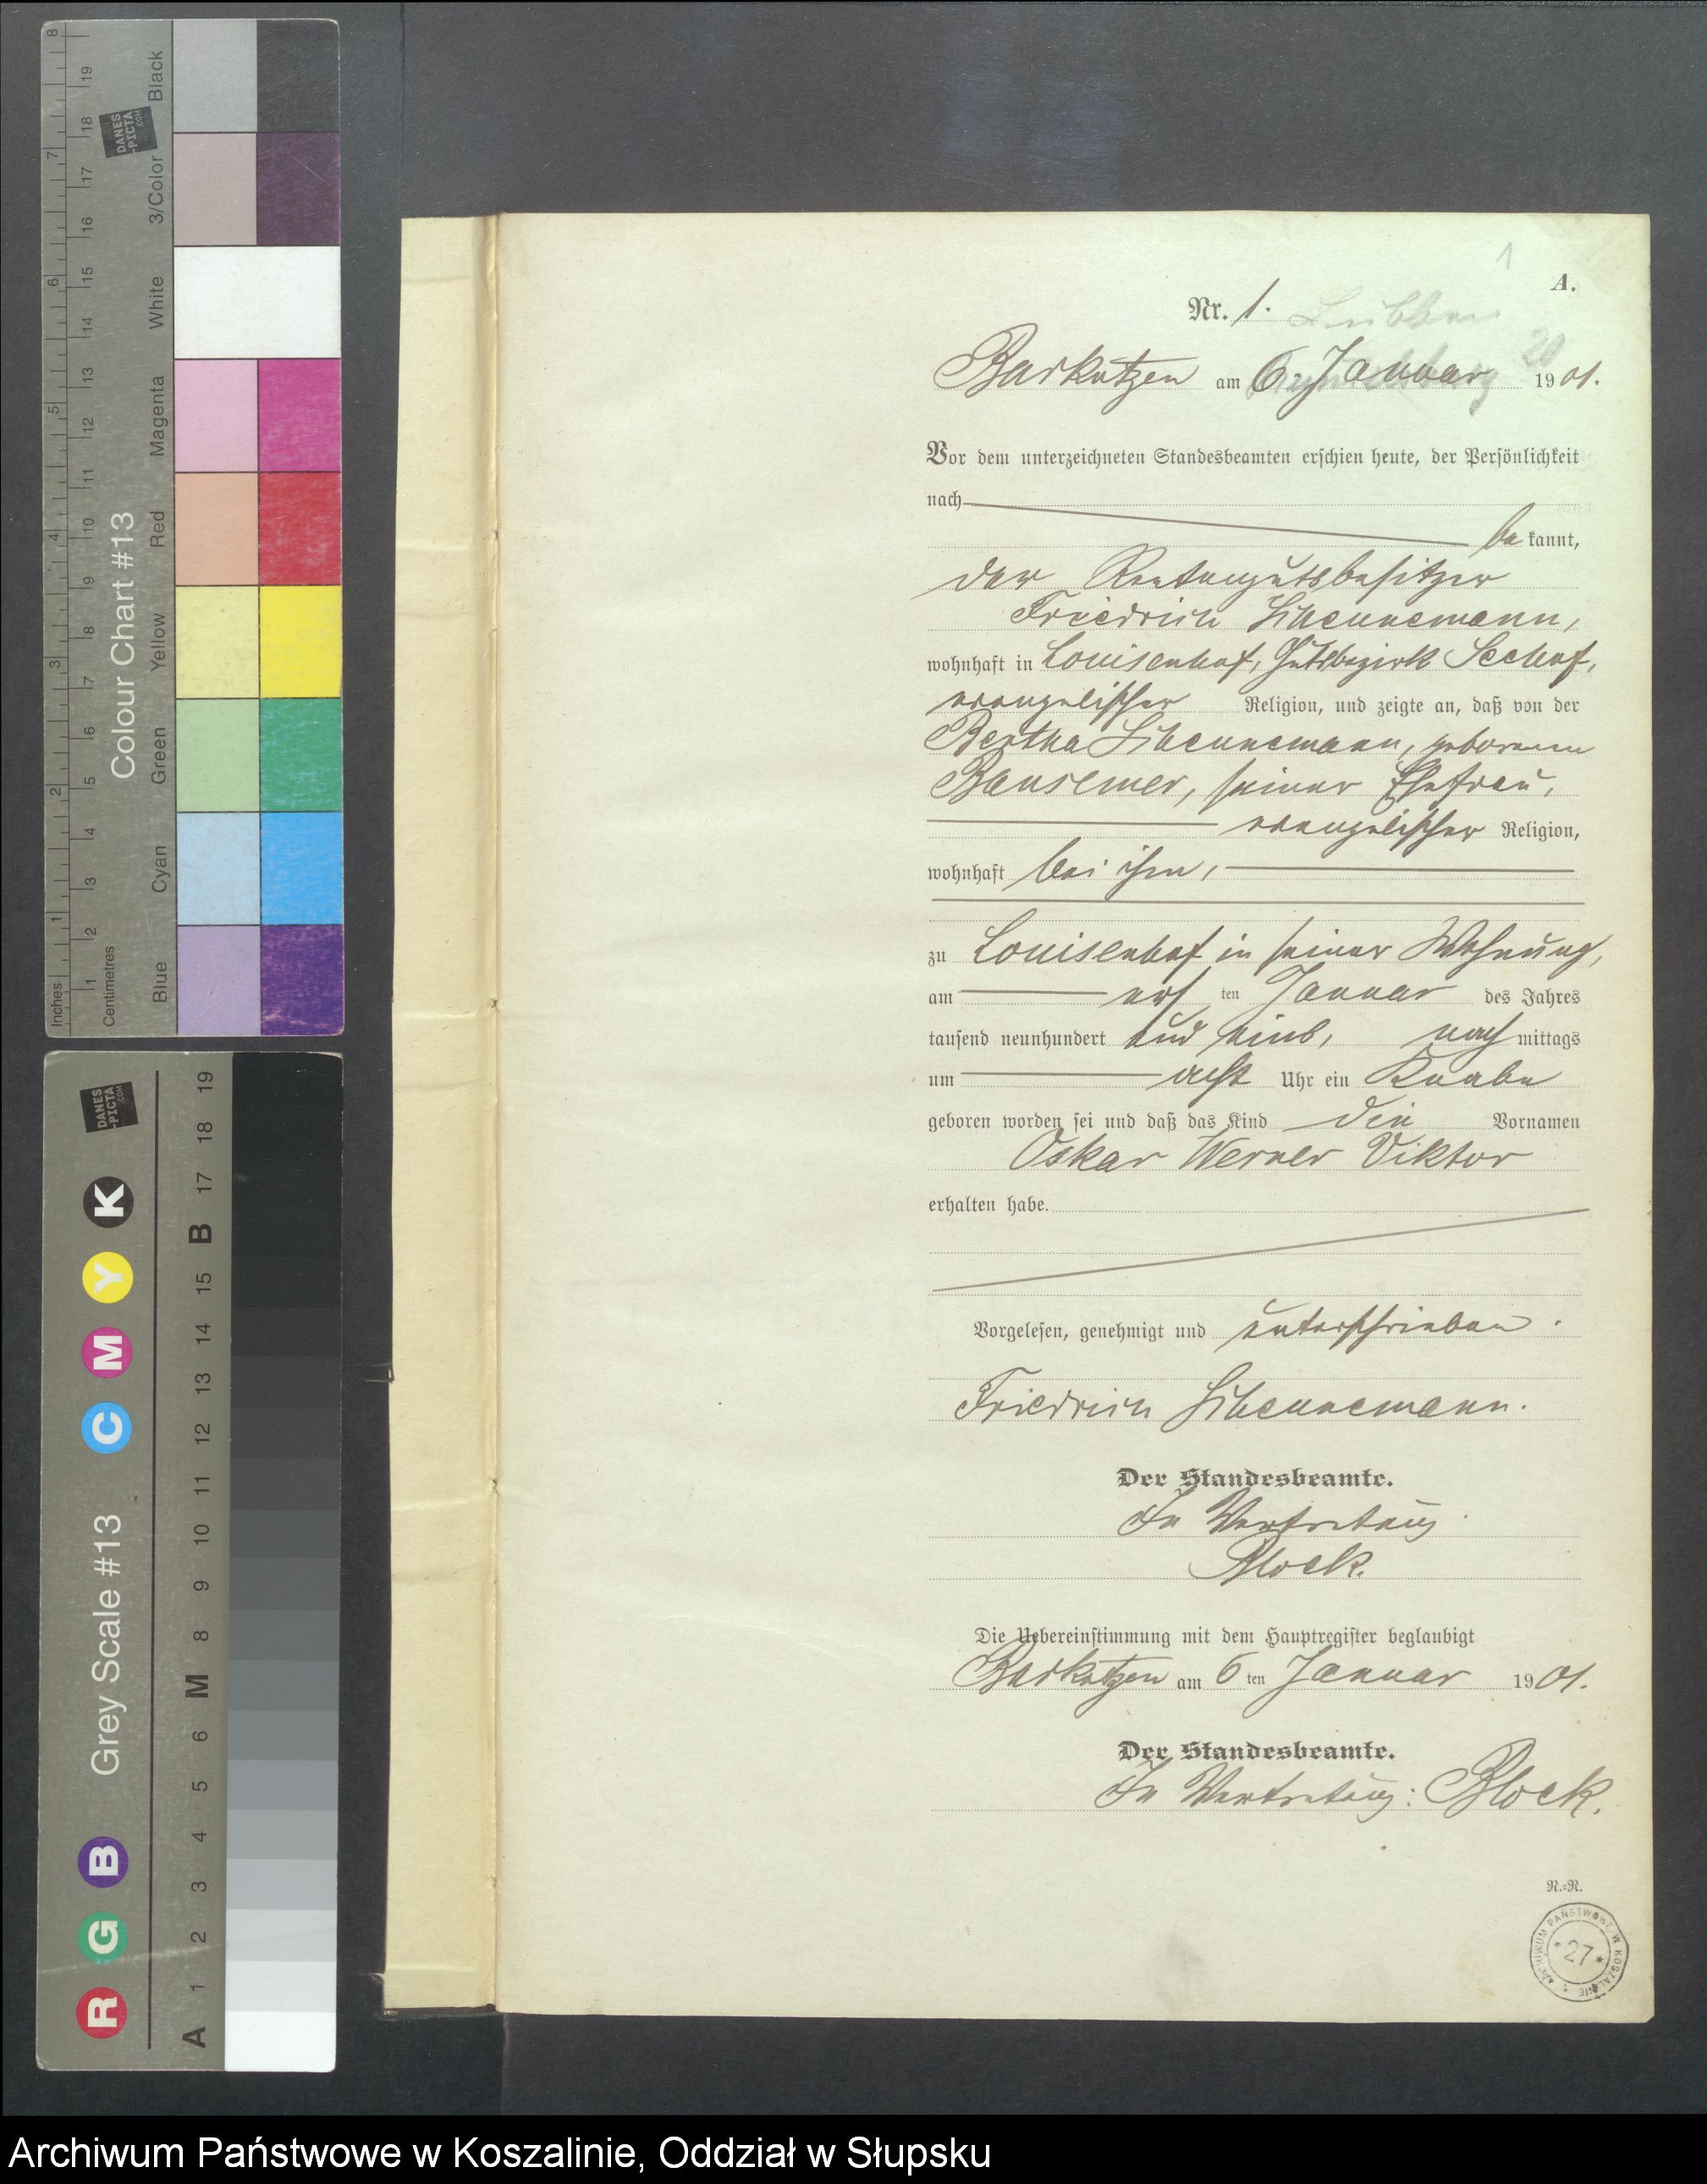 8
7
6
5
4
3
2
1
Inches
19
18
17
16
15
14
13
12
11
10
9
8
7
6
5
4
3
2
1
Centimetres
DANES
-PICTA
.COM
Colour Chart #13
Black
3/Color
White
Magenta
Red
Yellow
Green
Cyan
Blue
DANES
-PICTA
.COM
K
Y
M
C
Grey Scale #13
B
G
R
19
18
17
B
15
14
13
12
11
10
9
8
M
6
5
4
3
2
1
A
1
A.
Nr. 1.
20
Barkotzen am 6. Januar 1901.
Vor dem unterzeichneten Standesbeamten erschien heute, der Persönlichkeit
nach
be kannt,
der Rentengutsbesitzer
Friedrich
wohnhaft in Louisenhof, Gutsbezirk Seehof,
evangelischer Religion, und zeigte an, daß von der
Bertha geborenen
Bansemer, seiner Ehefrau,
evangelischer Religion,
wohnhaft bei ihm,
zu Louisenhof in seiner Wohnung,
am ten Januar des Jahres
tausend neunhundert und eins, nach mittags
um acht Uhr ein Knabe
geboren worden sei und daß das Kind die Vornamen
Oskar Werner Viktor
erhalten habe.
Vorgelesen, genehmigt und unterschrieben.
Friedrich
Der Standesbeamte.
In Vertretung
Block.
Die Uebereinstimmung mit dem Hauptregister beglaubigt
Barkotzen am 6 ten Januar 1901.
Der Standesbeamte.
In Vertretung: Block.
N.=R.
ARCHIWUM PAŃSTWOWE W KOSZALINIE
* 27 *
Archiwum Państwowe w Koszalinie, Oddział w Słupsku